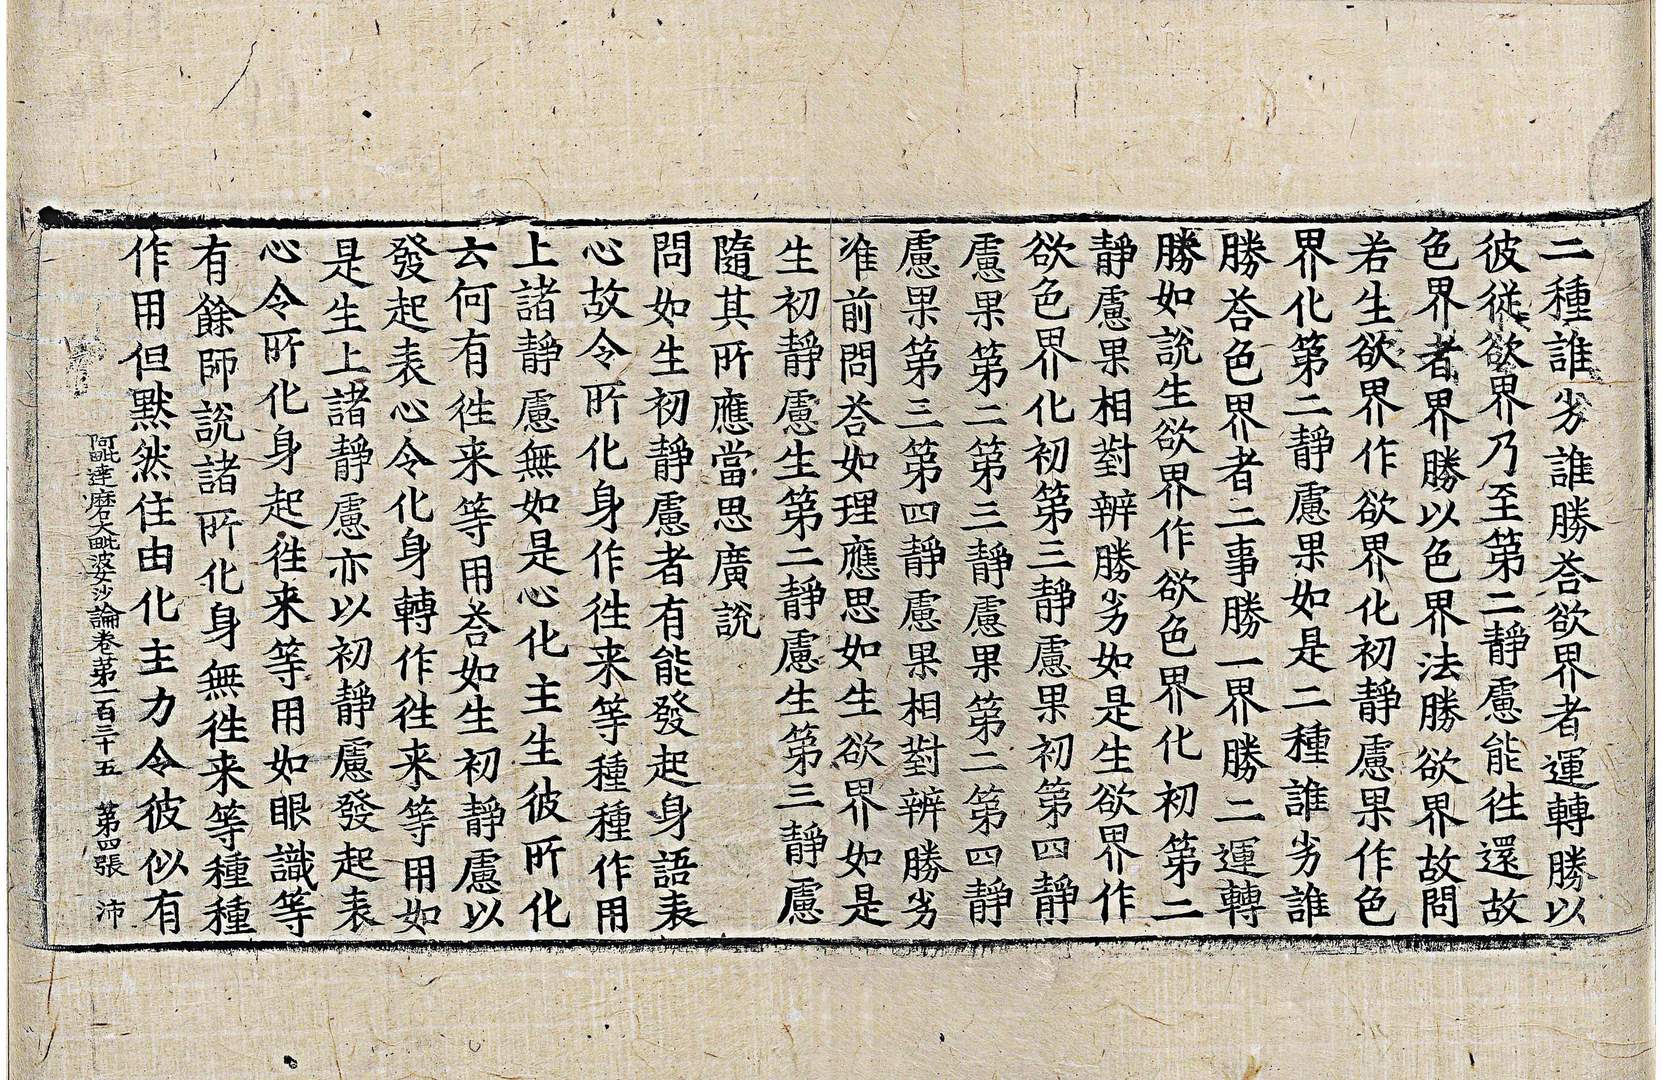 二種誰劣誰勝荅欲界者運轉勝以
彼從欲界乃至第二靜慮能往還故
色界者界勝以色界法勝欲界故問
若生欲界作欲界化初靜慮果作色
界化第二靜慮果如是二種誰劣誰
勝荅色界者二事勝一界勝二運轉
勝如說生欲界作欲色界化初第二
靜慮果相對辨勝劣如是生欲界作
欲色界化初第三靜慮果初第四靜
慮果第二第三靜慮果第二第四靜
慮果第三第四靜慮果相對辨勝劣
准前問荅如理應思如生欲界如是
生初靜慮生第二靜慮生第三靜慮
隨其所應當思廣說
問如生初靜慮者有能發起身語表
心故令所化身作往来等種種作用
上諸靜慮無如是心化主生彼所化
云何有往来等用荅如生初靜慮以
發起表心令化身轉作往来等用如
是生上諸靜慮亦以初靜慮發起表
心令所化身起往来等用如眼識等
有餘師說諸所化身無往来等種種
作用但默然住由化主力令彼似有
阿毗達磨大毗婆沙論卷第一百三十五 第四張 沛